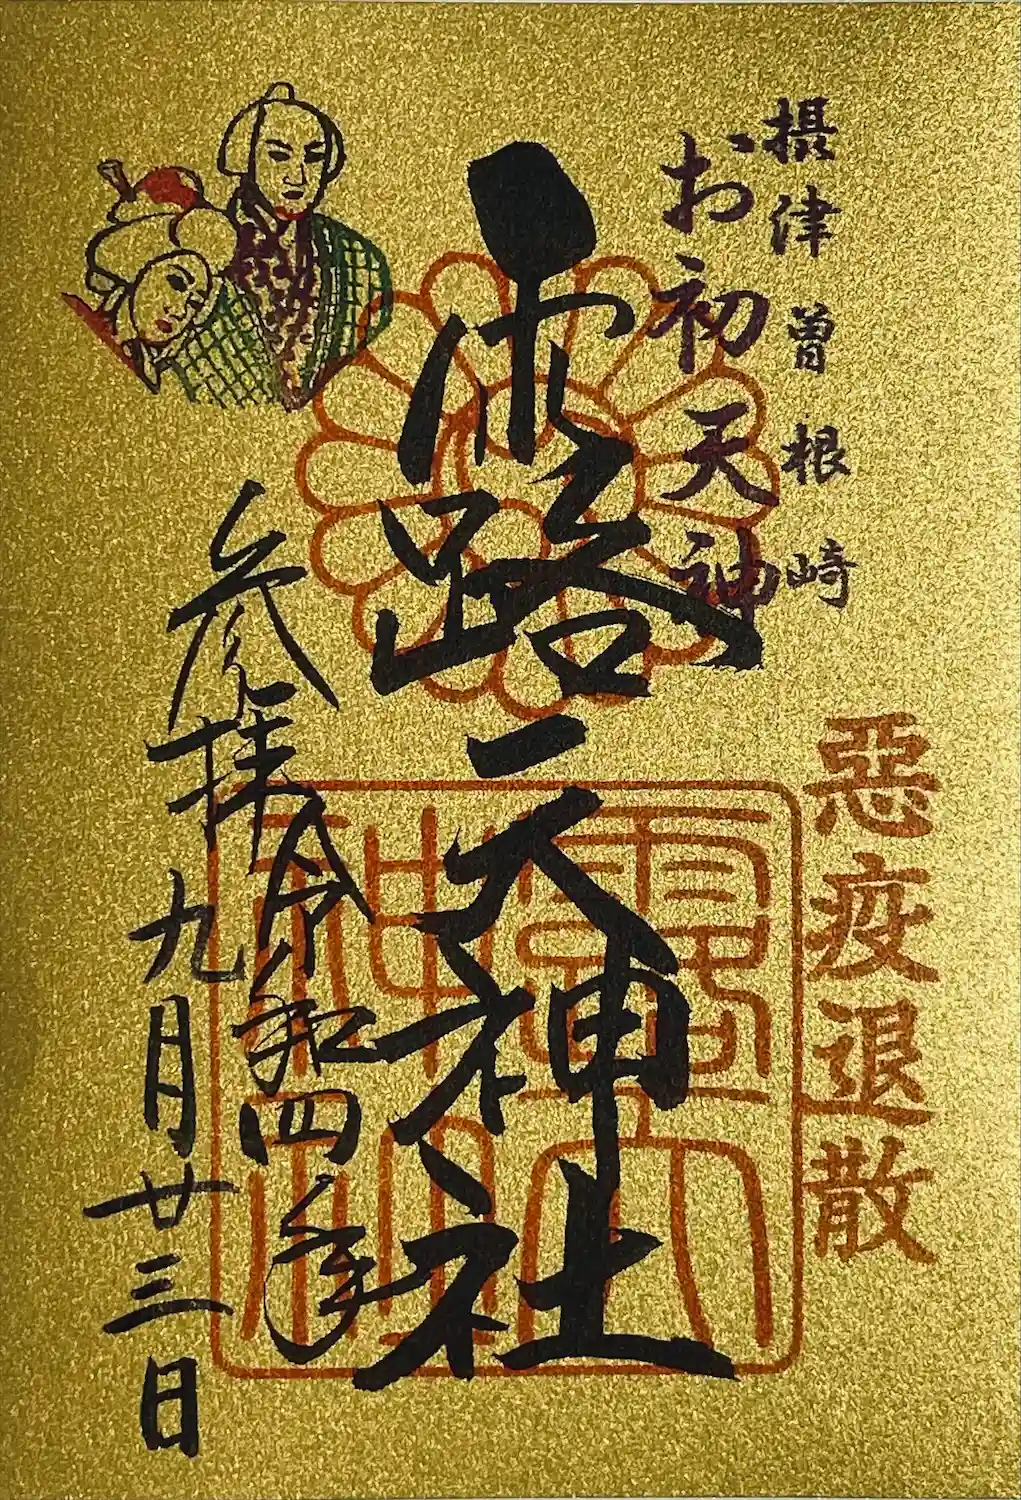 摂津曽根崎
お初天神
惡疫退散
露天神社
露天神社
参拝令和四年
九月廿三日